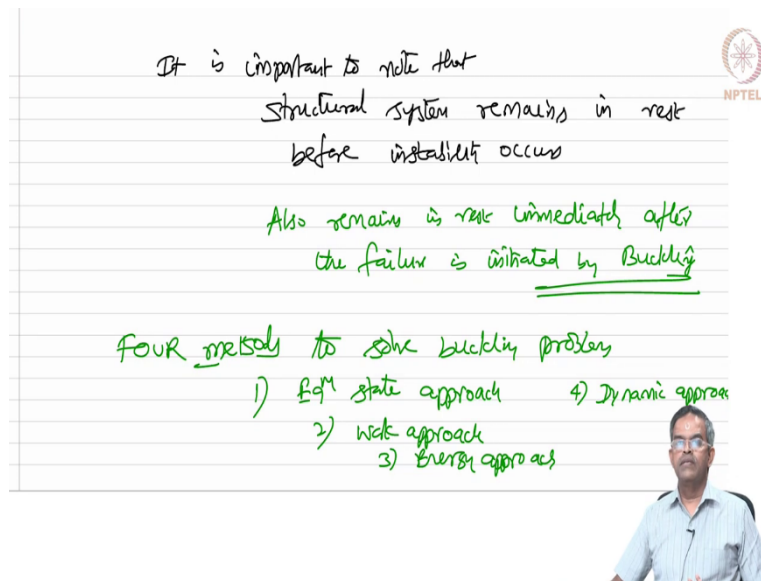 It is important to note that
structural system remains in rest
before instability occurs
NPTEL
Also remains in rest immediately after
the failure is initiated by Buckling
FOUR methods to solve buckling problem
1) Eqm state approach
4) Dynamic approac
2) Work approach
3) Energy approach